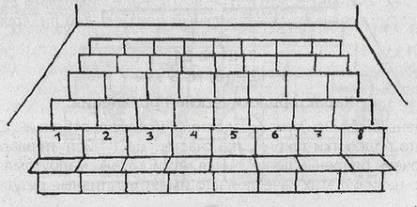 1 2 3 4 5 6 7 8